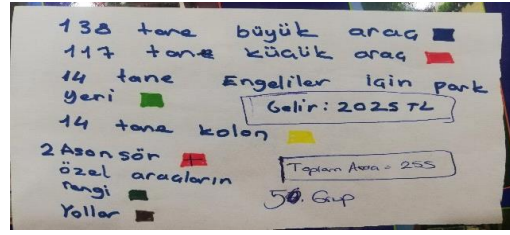 138 tane büyük araç
117 tane küçük araç
14 tane Engeliler için park
yeri
Gelir: 2025 TL
14 tane kolon
2 Asansör
özel araçların
rengi
Toplam Araç = 255
Yollar
50. Grup